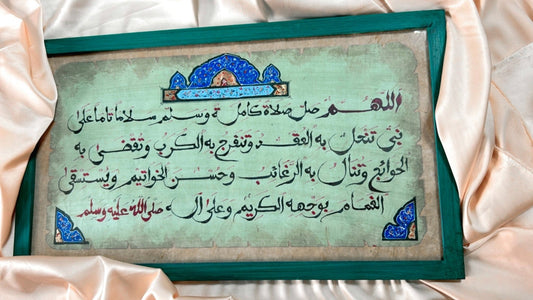 اللهم صل صلاة كاملة وسلم سلاما تاما على
نبي تنحل به العقد وتنفرج به الكرب وتقضى به
الحوائج وتنال به الرغائب وحسن الخواتيم ويستسقى
الغمام بوجهه الكريم وعلى آله صلى الله عليه وسلم